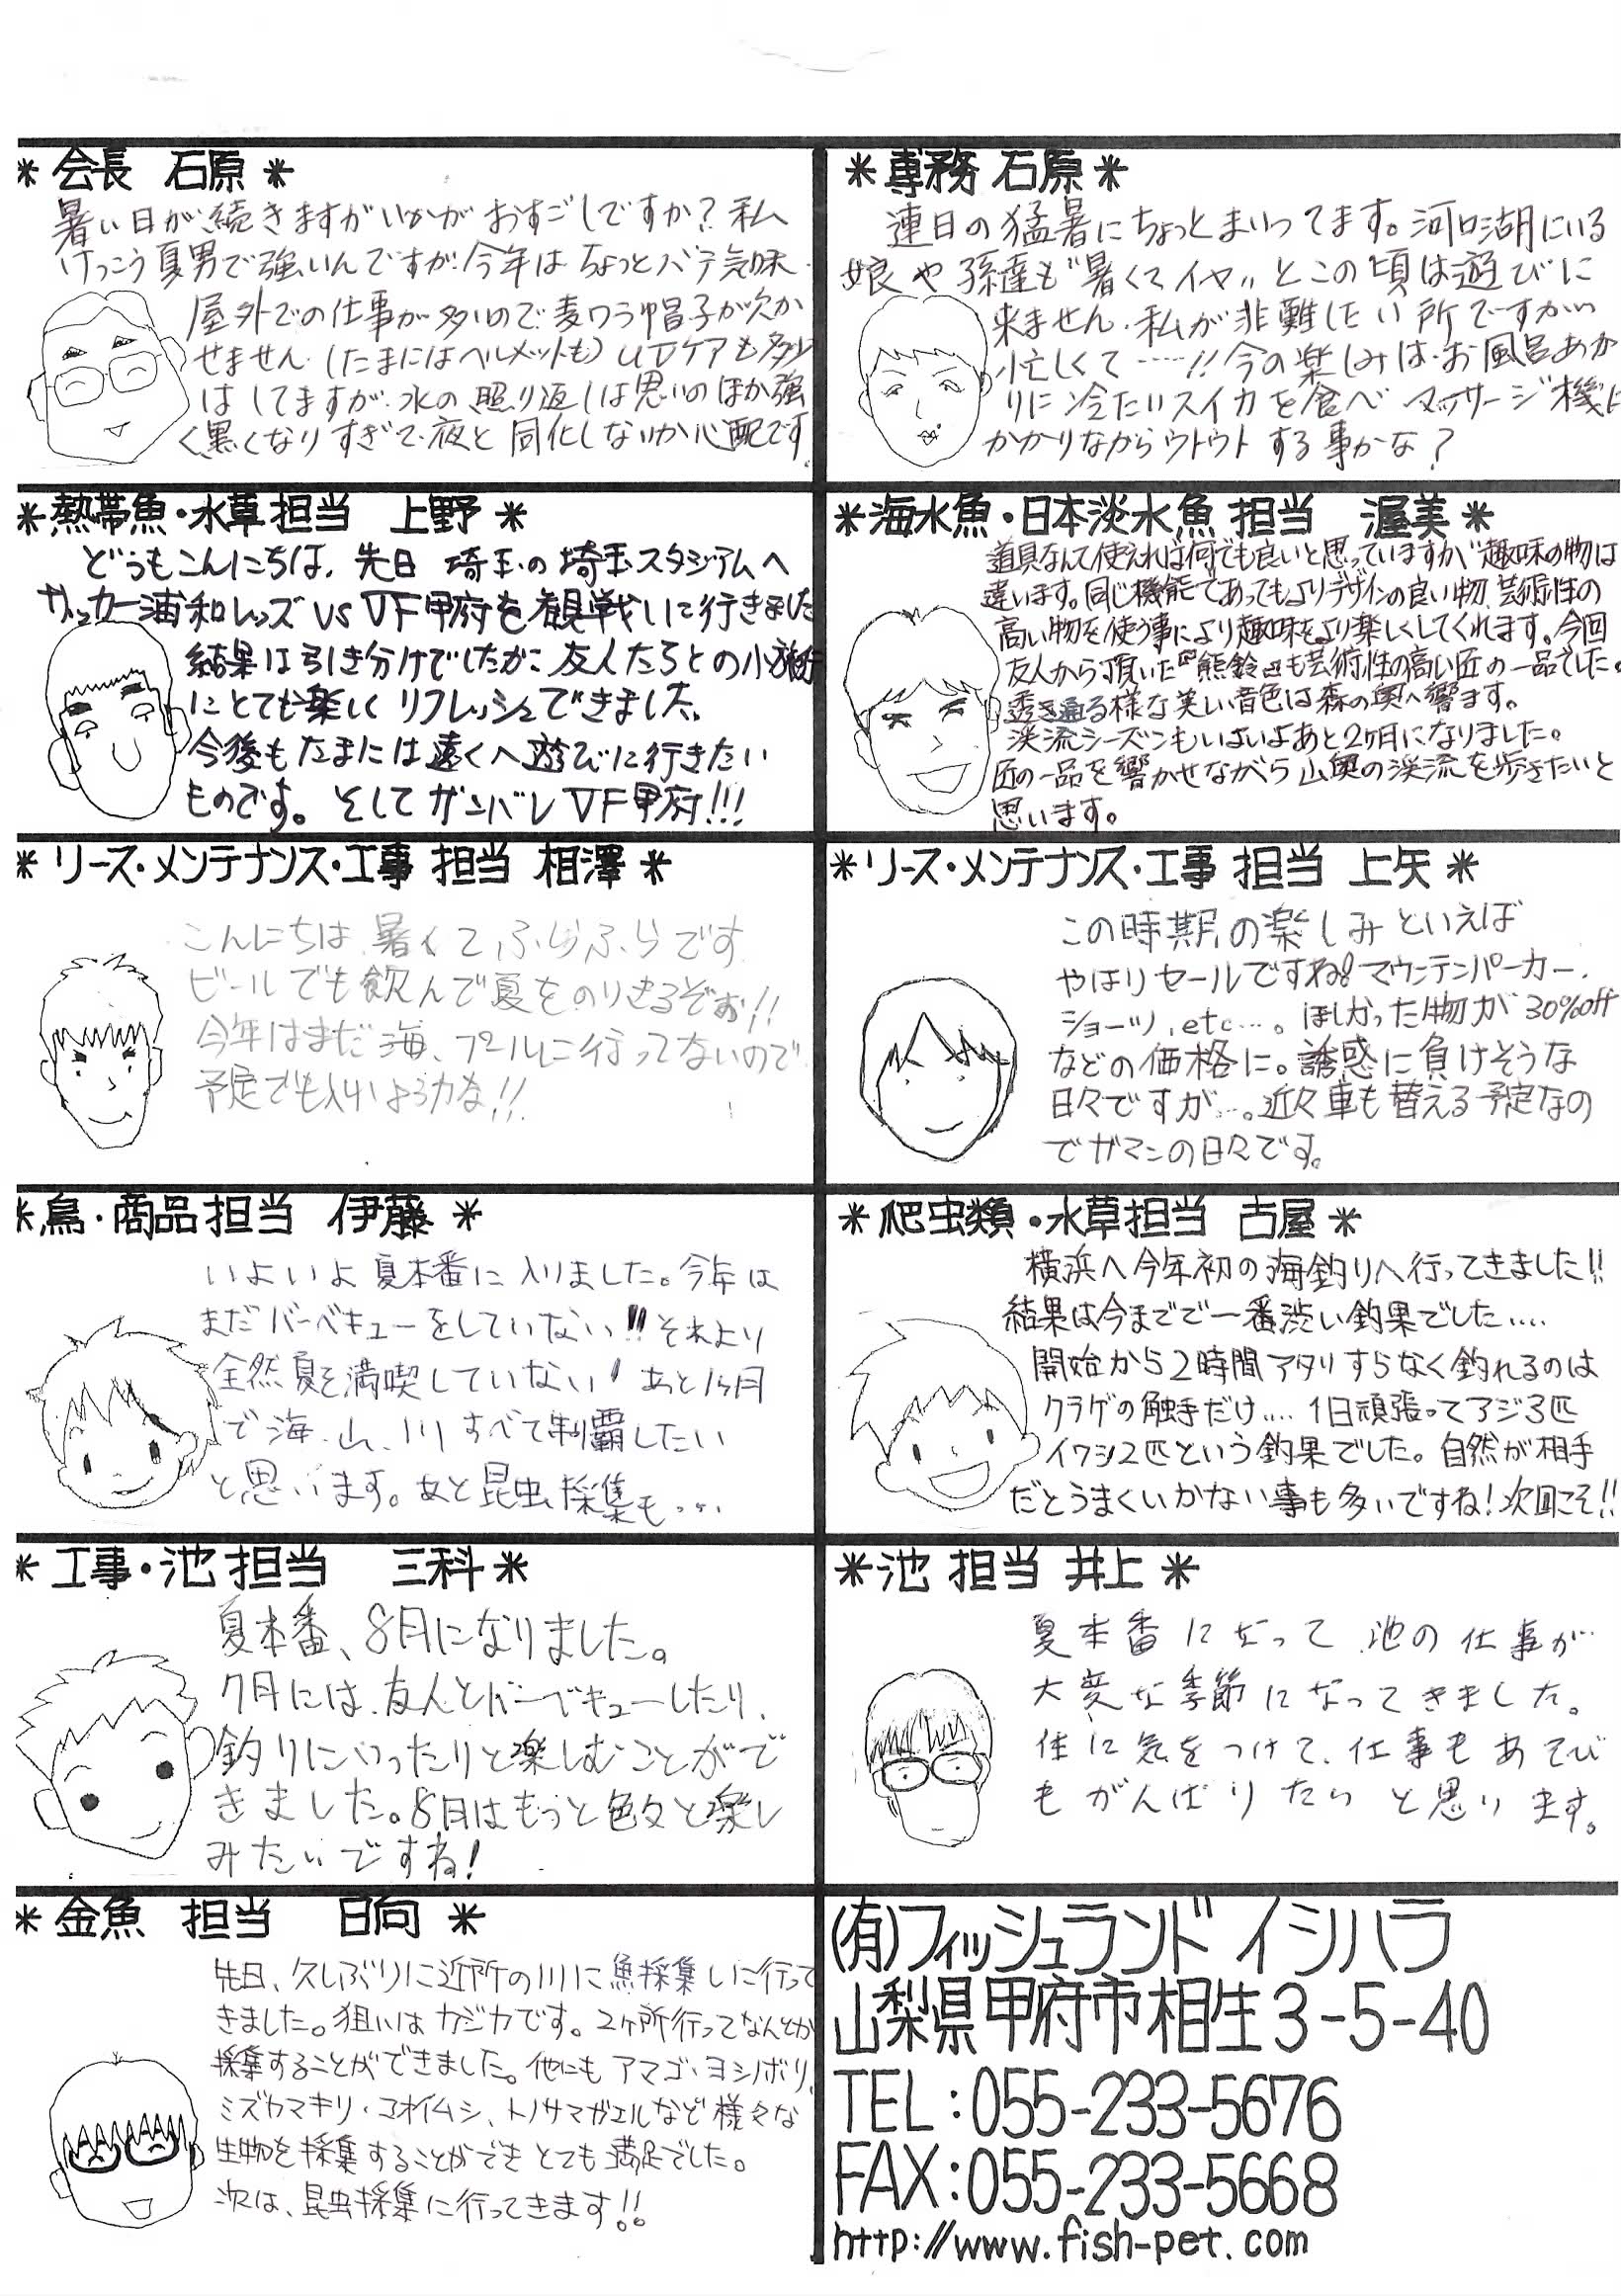 ＊会長 石原＊
暑い日が続きますがいかがおすごしですか？私
けっこう夏男で強いんですが、今年はちょっとバテ気味、
屋外での仕事が多いので麦ワラ帽子が欠か
せません。(たまにはヘルメットも)UVケアも多少
はしてますが、水の照り返しは思いのほか強
く黒くなりすぎて、夜と同化しないか心配です
＊専務 石原＊
連日の猛暑にちょっとまいってます。河口湖にいる
娘や孫達も“暑くてイヤ”とこの頃は遊びに
来ません、私が非難したい所ですがい
忙しくて……!!今の楽しみは、お風呂あが
りに冷たいスイカを食べ マッサージ機に
かかりながらウトウトする事かな？
＊熱帯魚・水草担当 上野＊
どうもこんにちは、先日 埼玉の埼玉スタジアムへ
サッカー浦和レッズ VS VF甲府を観戦しに行きました
結果は引き分けでしたが、友人たちとの小旅行
にとても楽しくリフレッシュできました。
今後もたまには遠くへ遊びに行きたい
ものです。そしてガンバレVF甲府!!!
＊海水魚・日本淡水魚 担当 渥美＊
道具なんて使えれば何でも良いと思っていますが、趣味の物は
違います。同じ機能であってもよりデザインの良い物、芸術性の
高い物を使う事により趣味をより楽しくしてくれます。今回
友人から頂いた『熊鈴』も芸術性の高い匠の一品でした。
透き通る様な美しい音色は森の奥へ響ます。
渓流シーズンもいよいよあと2ヶ月になりました。
匠の一品を響かせながら山奥の渓流を歩きたいと
思います。
＊リース・メンテナンス・工事 担当 相澤＊
こんにちは、暑くてふらふらです
ビールでも飲んで夏をのりきるぞぉ!!
今年はまだ海、プールに行ってないので
予定でも入れようかな!!
＊リース・メンテナンス・工事 担当 上矢＊
この時期の楽しみといえば
やはりセールですね!マウンテンパーカー、
ショーツ、etc…。ほしかった物が30%off
などの価格に。誘惑に負けそうな
日々ですが…。近々車も替える予定なの
でガマンの日々です。
＊鳥・商品担当 伊藤＊
いよいよ夏本番に入りました。今年は
まだバーベキューをしていない!!それより
全然夏を満喫していない!あと1ヶ月
で海、山、川すべて制覇したい
と思います。あと昆虫採集も…
＊爬虫類・水草担当 古屋＊
横浜へ今年初の海釣りへ行ってきました!!
結果は今までで一番渋い釣果でした....
開始から2時間アタリすらなく釣れるのは
クラゲの触手だけ....1日頑張ってアジ3匹
イワシ2匹という釣果でした。自然が相手
だとうまくいかない事も多いですね!次回こそ!!
＊工事・池担当 三科＊
夏本番、8月になりました。
7月には、友人とバーベキューしたり、
釣りにいったりと楽しむことがで
きました。8月はもっと色々と楽し
みたいですね!
＊池 担当 井上＊
夏本番になって、池の仕事が
大変な季節になってきました。
体に気をつけて、仕事もあそび
もがんばりたいと思います。
＊金魚 担当 日向＊
先日、久しぶりに近所の川に魚採集しに行って
きました。狙いはカジカです。2ヶ所行ってなんとか
採集することができました。他にもアマゴ・ヨシノボリ、
ミズカマキリ・コオイムシ、トノサマガエルなど様々な
生物を採集することができとても満足でした。
次は、昆虫採集に行ってきます!!
(有)フィッシュランド イシハラ
山梨県甲府市相生3-5-40
TEL:055-233-5676
FAX:055-233-5668
http://www.fish-pet.com